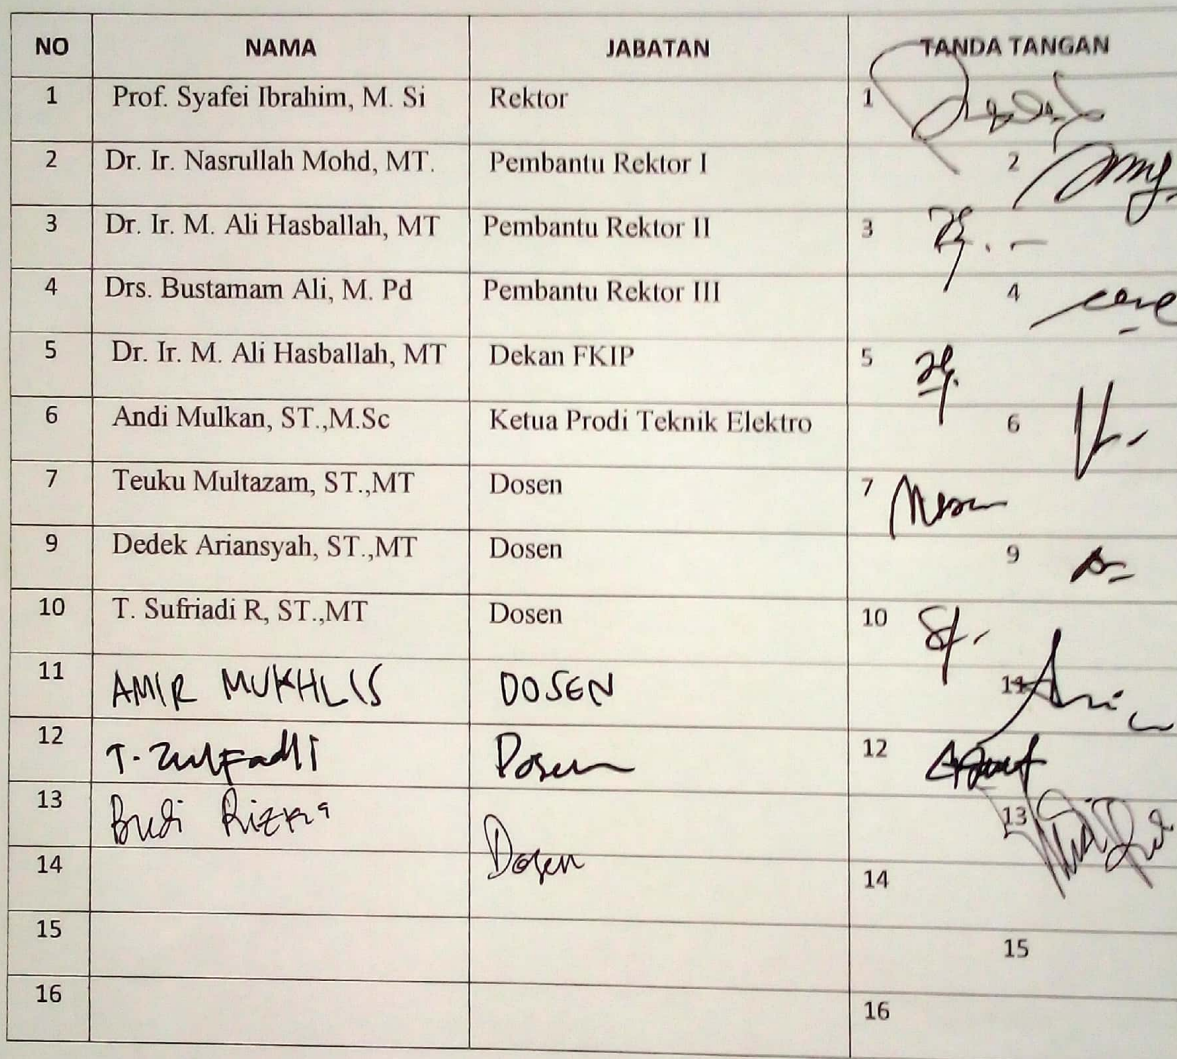 NO NAMA JABATAN TANDA TANGAN
1 Prof. Syafei Ibrahim, M. Si Rektor 1
2 Dr. Ir. Nasrullah Mohd, MT. Pembantu Rektor I 2
3 Dr. Ir. M. Ali Hasballah, MT Pembantu Rektor II 3
4 Drs. Bustamam Ali, M. Pd Pembantu Rektor III 4
5 Dr. Ir. M. Ali Hasballah, MT Dekan FKIP 5
6 Andi Mulkan, ST.,M.Sc Ketua Prodi Teknik Elektro 6
7 Teuku Multazam, ST.,MT Dosen 7
9 Dedek Ariansyah, ST.,MT Dosen 9
10 T. Sufriadi R, ST.,MT Dosen 10
11 AMIR MUKHLIS DOSEN 11
12 T. Zulfadli Dosen 12
13 Budi Rizka Dosen 13
14 14
15 15
16 16